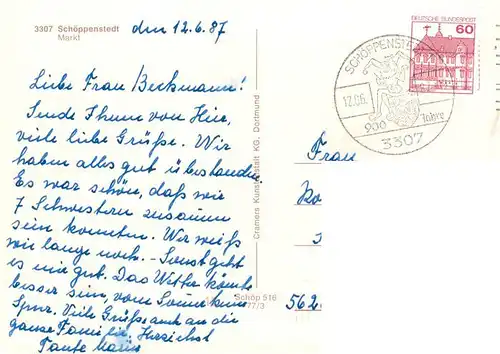 3307 Schöppenstedt
Markt
den 12.6.87
Liebe Frau Beckmann!
Sende Ihnen von Hier,
viele liebe Grüße. Wir
haben alles gut überstanden
Es war schön, daß wir
7 Schwestern zusamm
sein konnten. Wer weiß
wie lange noch. Sonst geht
es mir gut. Das Wetter könnte
besser sein, von Sonne keine
Spur. Viele Grüße auch an die
ganze Familie. Herzichst
Tante Maria
Cramers Kunstanstalt KG, Dortmund
Schöp 516
77/3
DEUTSCHE BUNDESPOST
60
SCHÖPPENSTEDT
12.06.
900 Jahre
3307
Frau
562